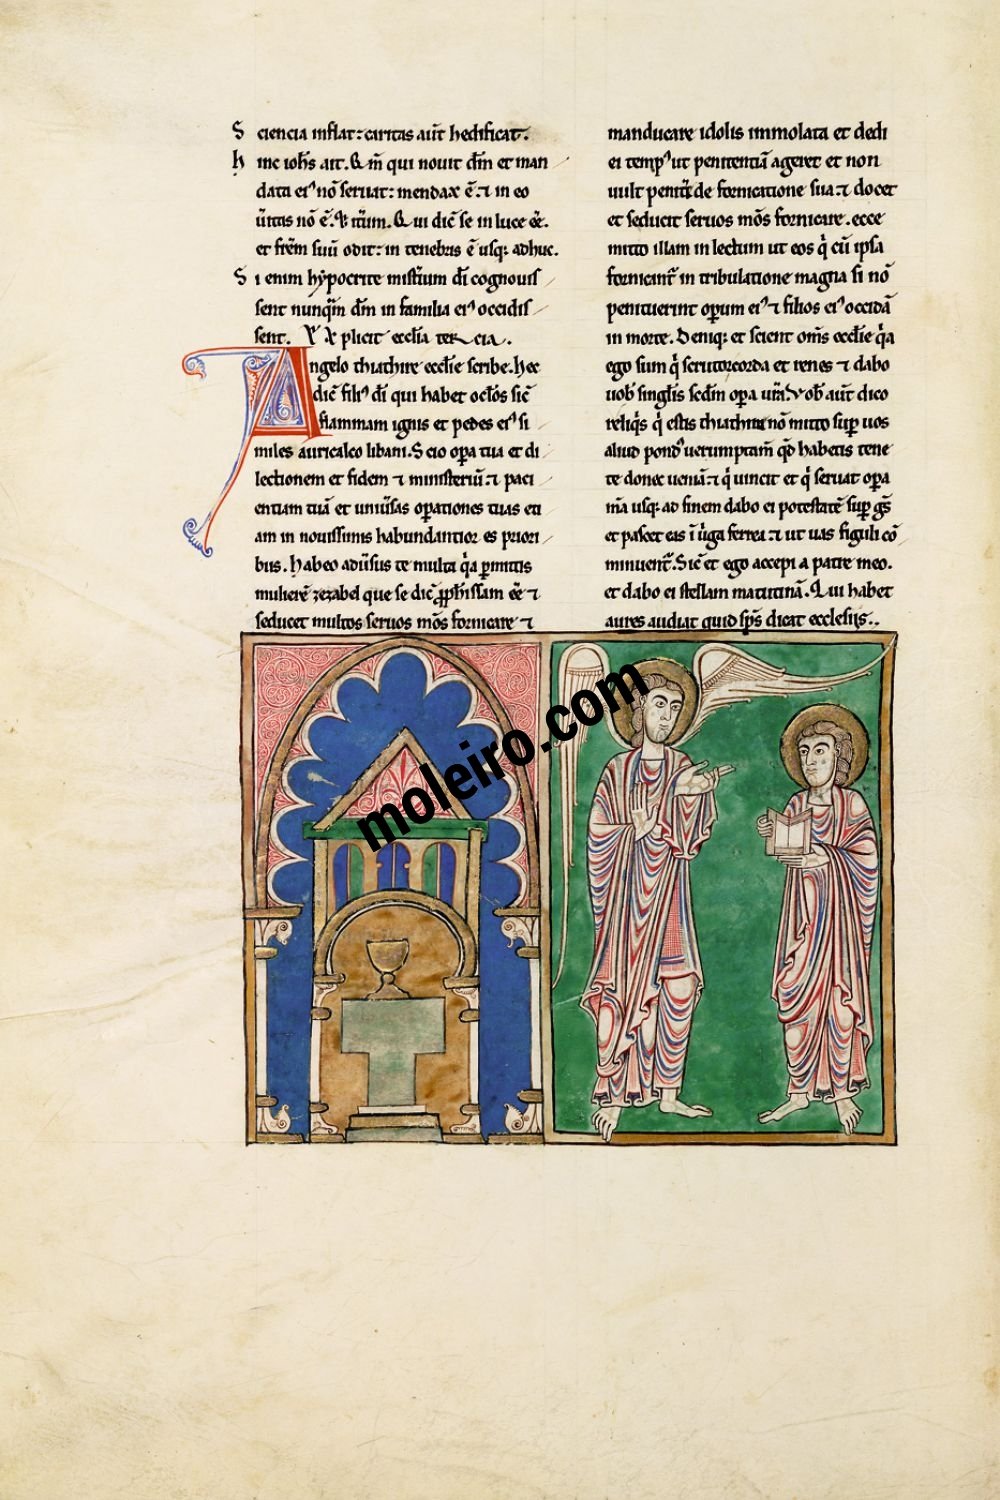 S ciencia inflat: caritas aut̄ hedificat.
h inc ioh̄s ait. Et m̄ qui nouit dm̄ et man
data ei᾽ nō seruat: mendax ē: ⁊ in eo
ūitas nō ē. ⁊ itūm. Qui dic̄ se in luce ēē.
et frēm suū odit: in tenebris ē usq; adhuc.
S i enim hypocrite misteīum di̅ cognouis
sent nunq̄m dm̄ in familia ei᾽ occidis
sent. Explicit eccl̄ia tercia.
Angelo thiathire eccl̄ie scribe. Hec
dic̄ fili᾽ di̅ qui habet ocl̄os sic̄
flammam ignis et pedes ei᾽ si
miles auricalco libani. Scio oꝑa tua et di
lectionem et fidem ⁊ ministeriū: ⁊ paci
entiam tuā et uniūsas oꝑationes tuas eti
am in nouissimis habundantior es priori
bus. Habeo adūsus te multa q̄a ꝑmittis
mulierē zezabel que se dic̄ ꝓph̄issam ēē ⁊
seducet multos seruos mōs fornicare ⁊
manducare idolis immolata et dedi
ei temp᾽ ut penitentiā ageret et non
uult penit̄e de fornicatione sua: ⁊ docet
et seducit seruos mōs fornicare. ecce
mitto illam in lectum ut eos q̄ cū ipsa
fornicant᾽ in tribulatione magna si nō
penituerint oꝑum ei᾽ ⁊ filios ei᾽ occidā
in morte. Deniq; et scient om̄s eccl̄ie q̄a
ego sum q̄ scrutor corda et renes ⁊ dabo
uob᾽ singl̄is scdm̄ oꝑa ur̄a. Vob᾽ aut̄ dico
reliq̄s q̄ estis thiathire nō mitto suꝑ uos
aliud pond᾽ uerumptam̄ qd̄ habetis tene
te donec ueniā: ⁊ q̄ uincit et q̄ seruat oꝑa
m̄a usq; ad finem dabo ei potestatē suꝑ gs̄
et pascet eas i ūga ferrea: ⁊ ut uas figuli cō
minuent᾽. Sic̄ et ego accepi a patre meo.
et dabo ei stellam matutinā. Qui habet
aures audiat quid sp̄s dicat ecclesiis..
moleiro.com